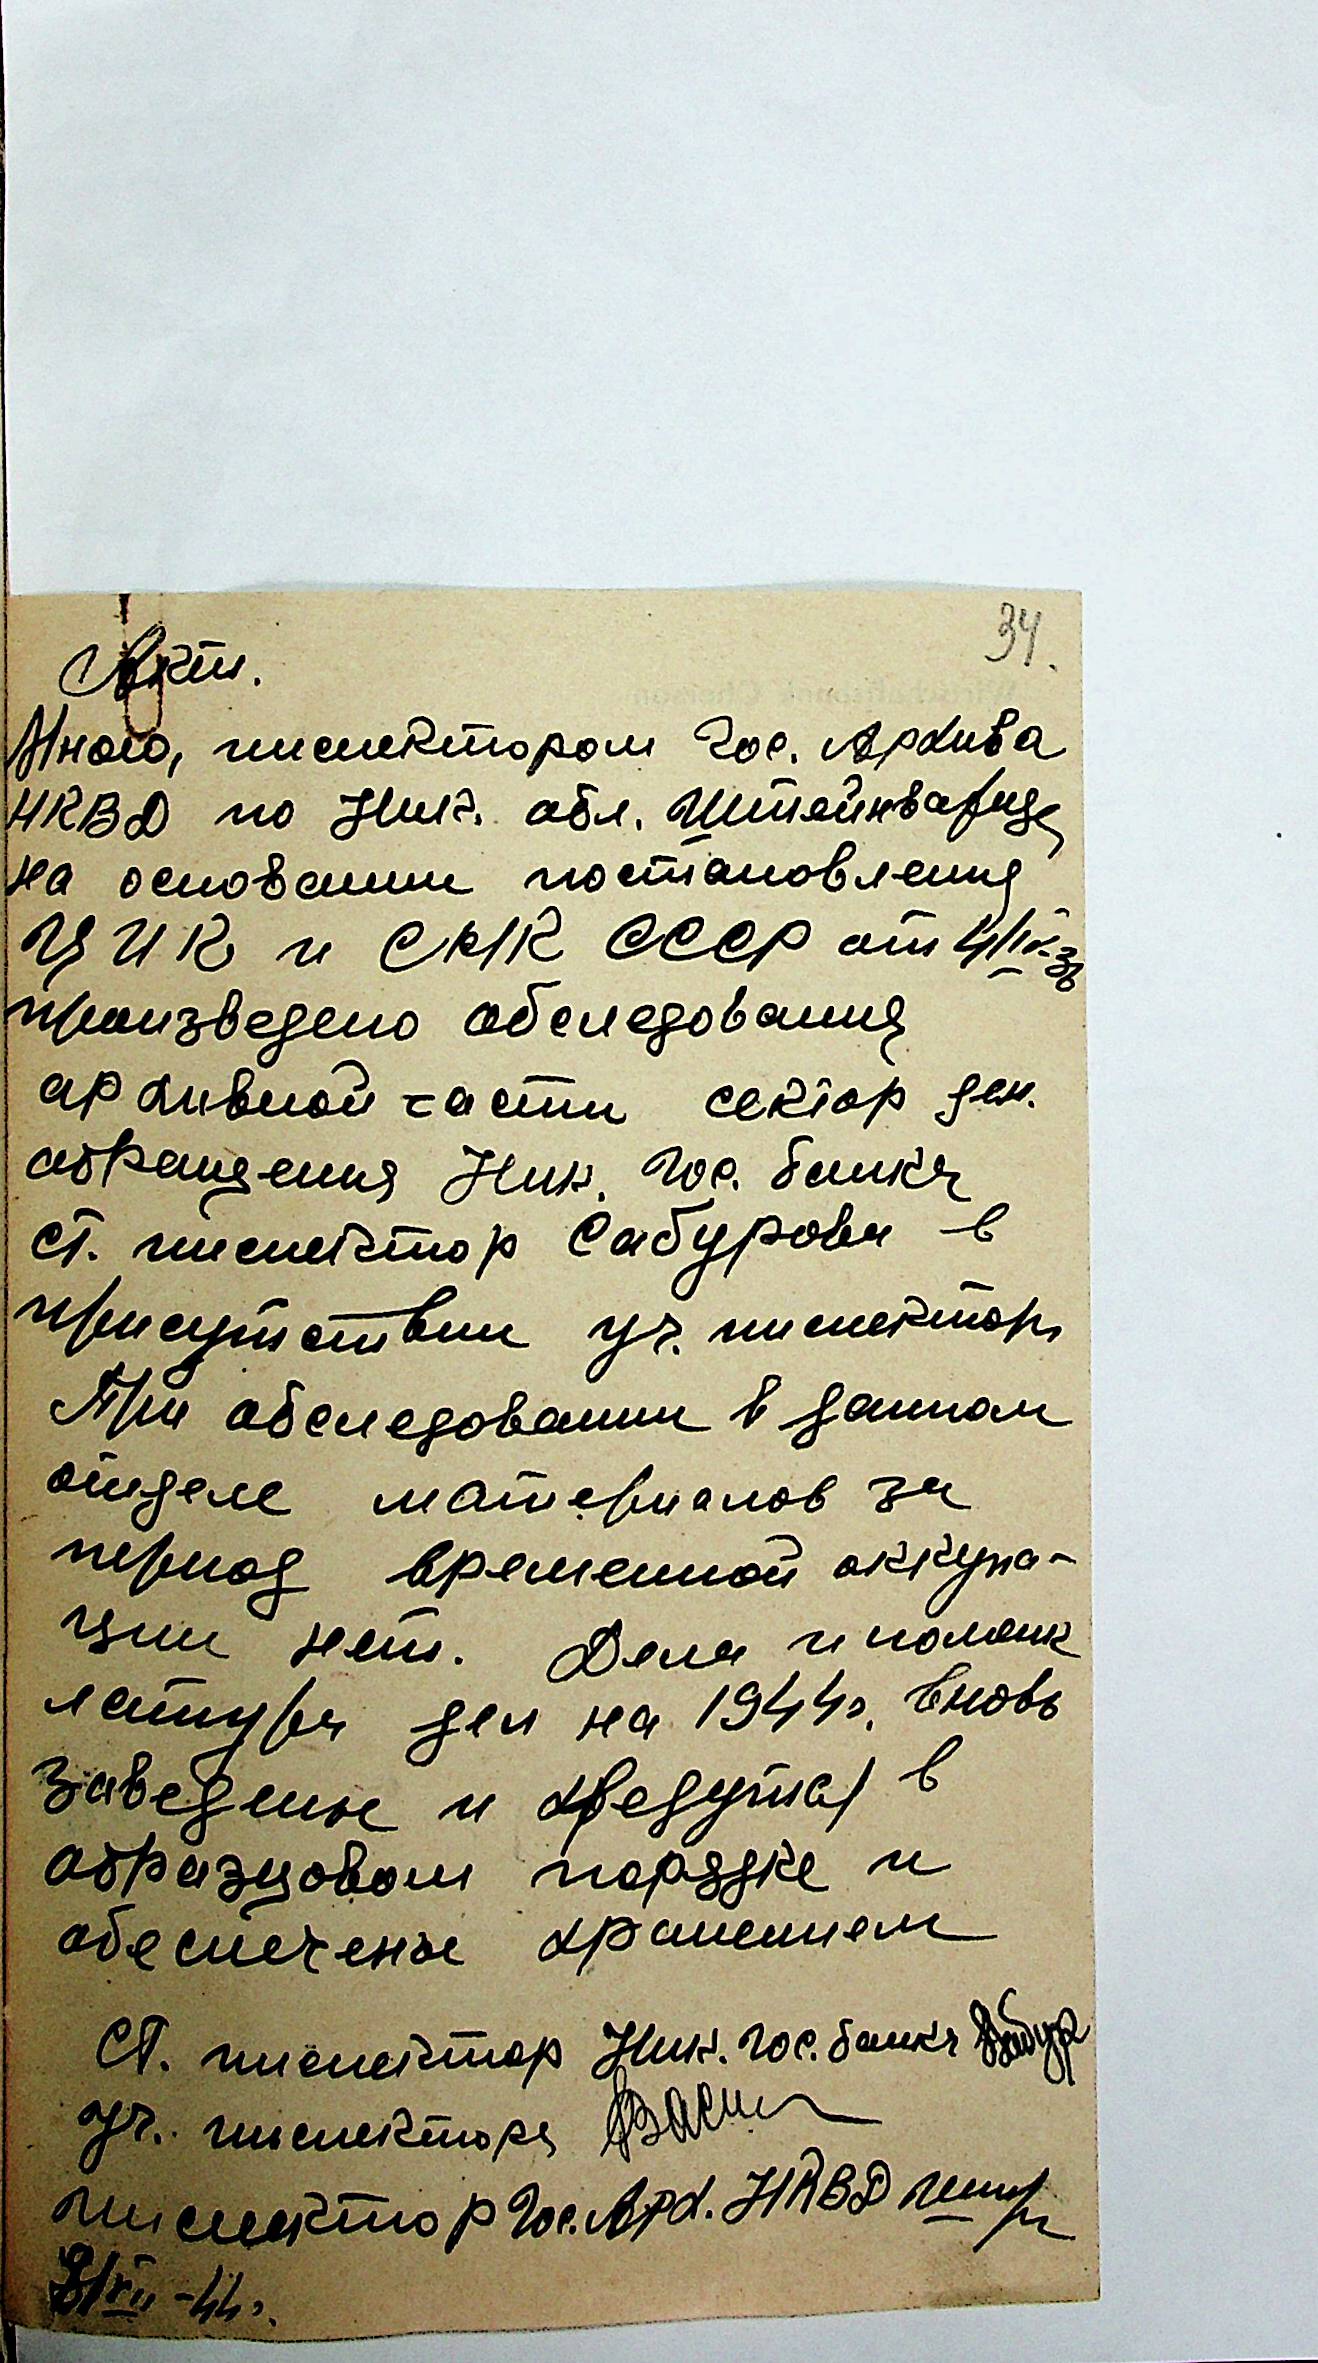 34.
Акт.
Мною, инспектором Гос. Архива
НКВД по Ник. обл. Штейнварц
на основании постановления
ЦИК и СНК СССР от
произведено обследования
архивной части сектор ден.
обращения Ник. Гос. банка
ст. инспектор Сабурова в
присутствии уч. инспектор,
При обследовании в данном
отделе материалов за
период временной оккупа-
ции нет. Дела и номенк
латура дел на 1944г. вновь
заведены и ведутся в
образцовом порядке и
обеспечены хранением
Ст. инспектор Ник. гос. банка Сабур
уч. инспектора
инспектор Гос. Арх. НКВД
VII -44г.